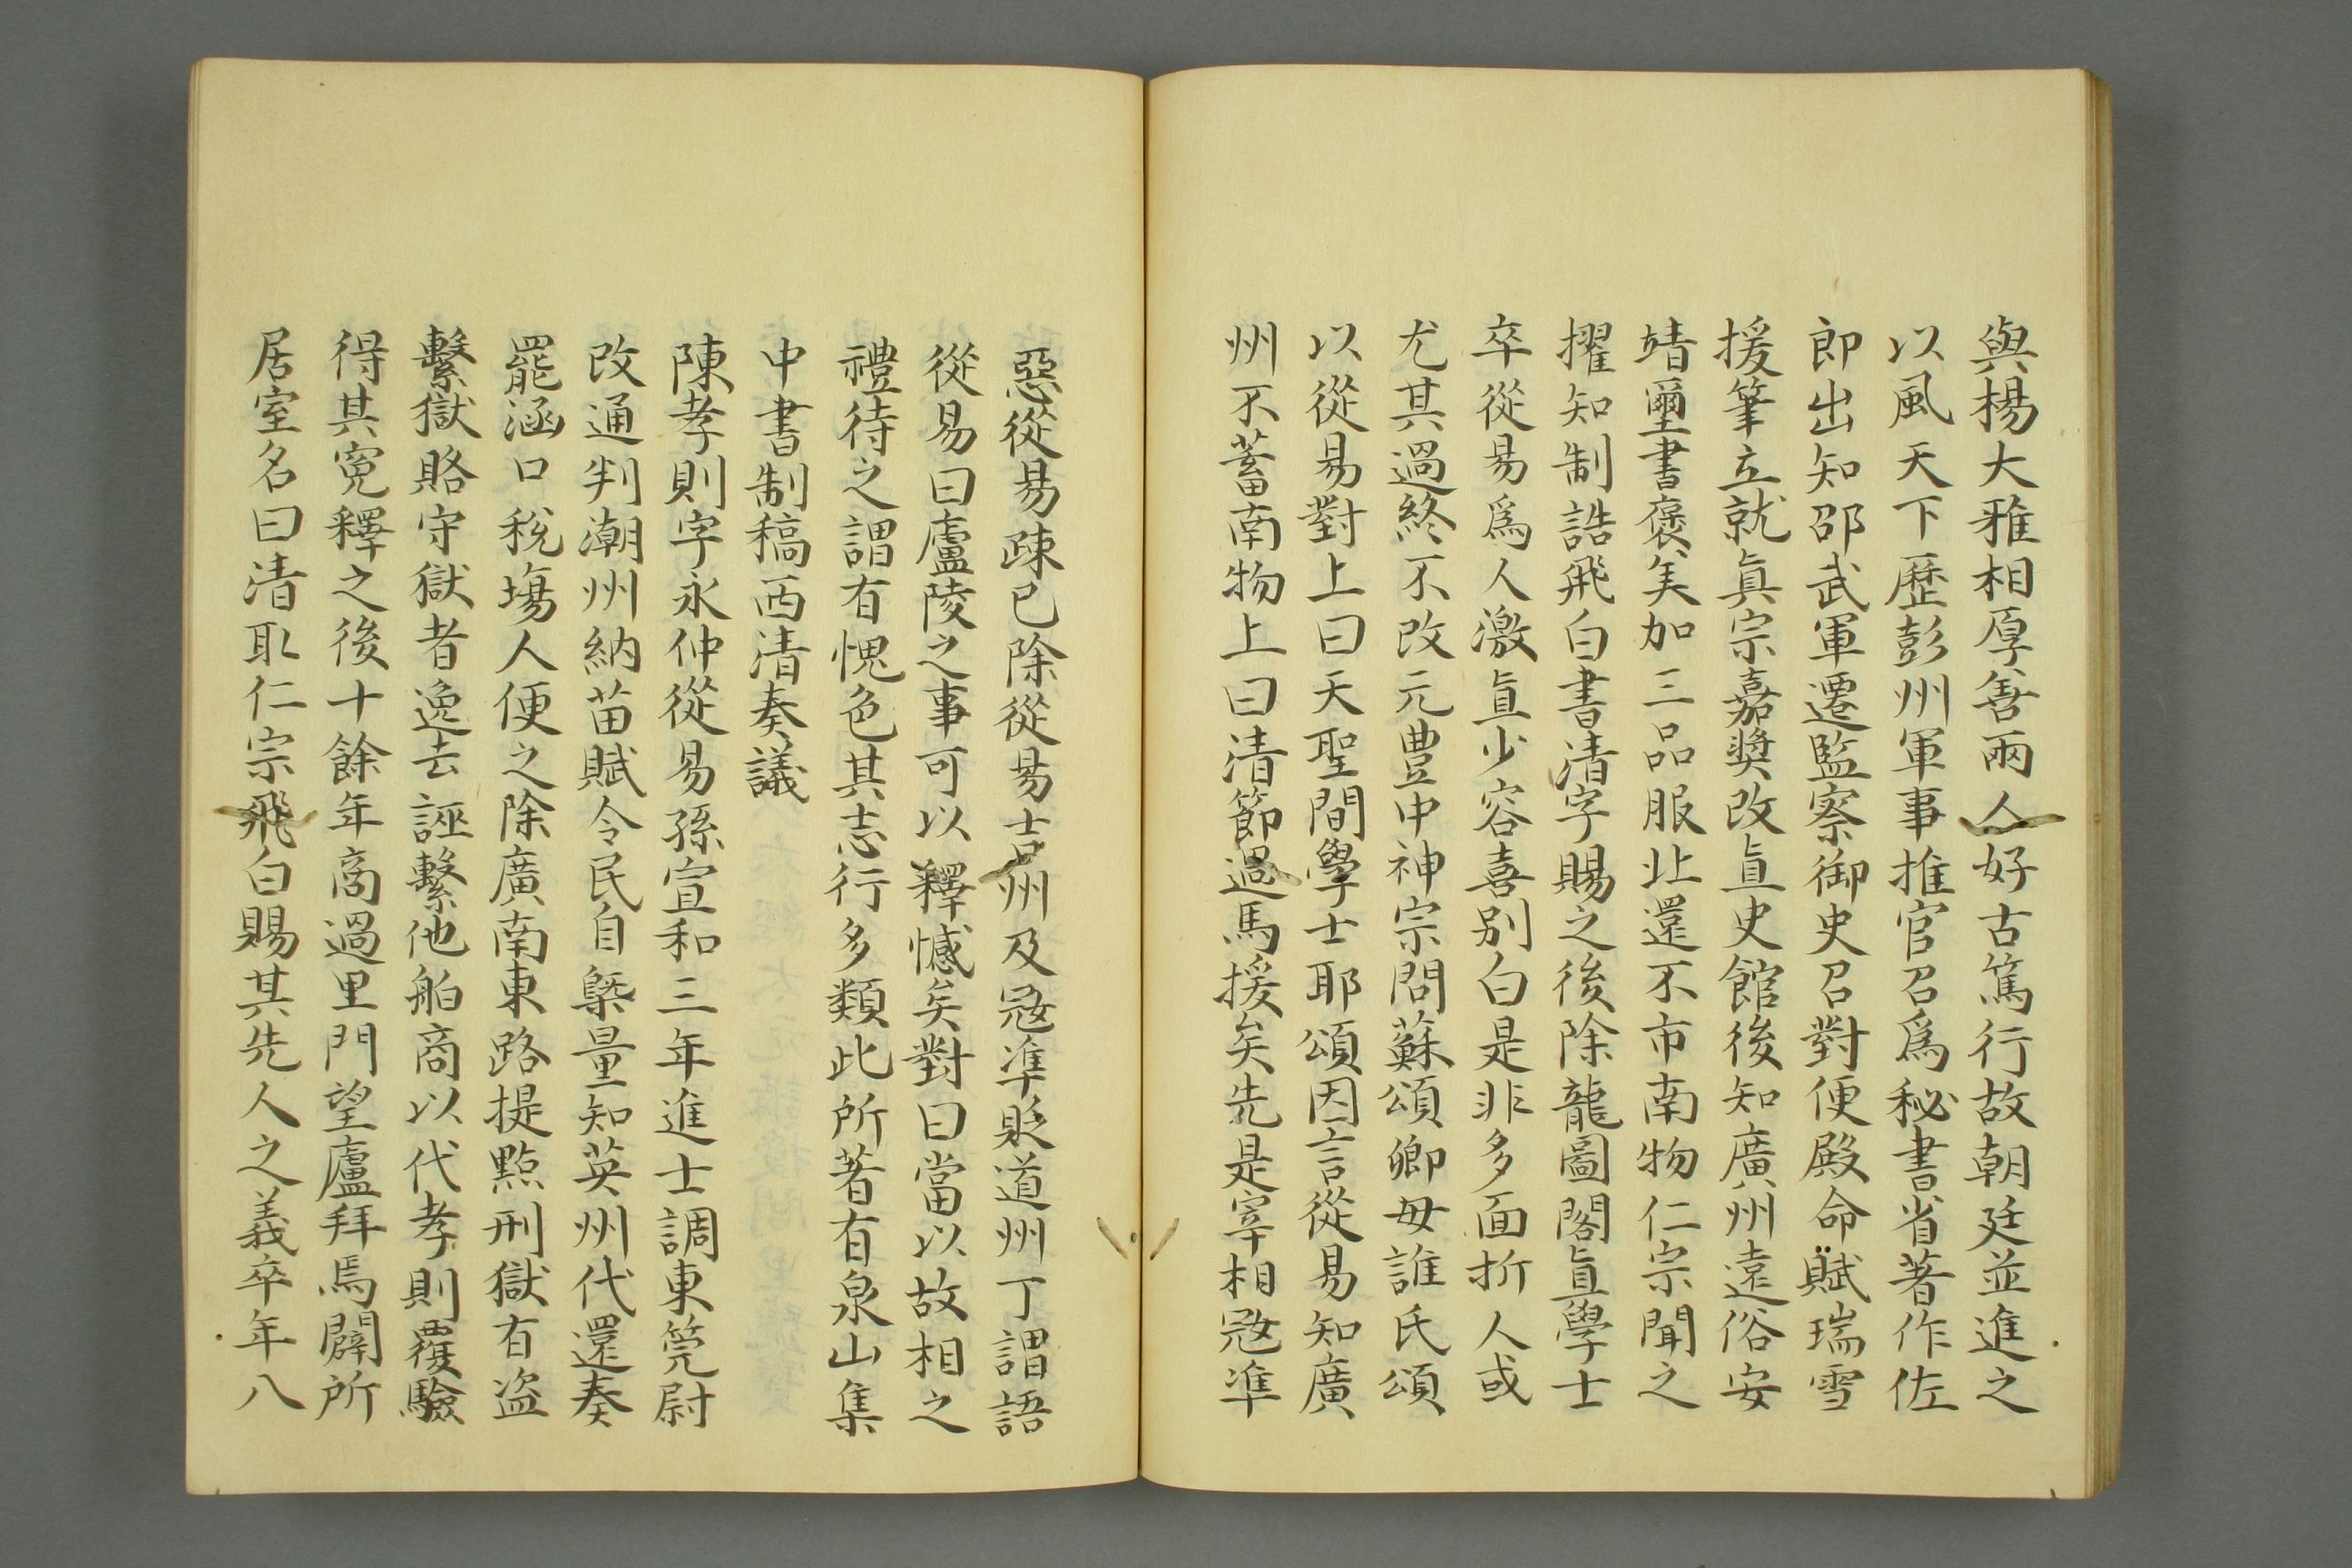 與楊大雅相厚善兩人好古篤行故朝廷並進之
以風天下歷彭州軍事推官召爲秘書省著作佐
郎出知邵武軍遷監察御史召對便殿命賦瑞雪
援筆立就眞宗嘉奬改直史館後知廣州遠俗安
靖璽書褒美加三品服北還不市南物仁宗聞之
擢知制誥飛白書清字賜之後除龍圖閣直學士
卒從易爲人激直少容喜别白是非多面折人或
尤其過終不改元豊中神宗問蘇頌卿毋誰氏頌
以從易對上曰天聖間學士耶頌因言從易知廣
州不蓄南物上曰清節過馬援矣先是宰相冦準
惡從易疎已除從易吉州及冦準貶道州丁謂語
從易曰廬陵之事可以釋憾矣對曰當以故相之
禮待之謂有愧色其志行多類此所著有泉山集
中書制稿西清奏議
陳孝則字永仲從易孫宣和三年進士調東筦尉
改通判潮州納苗賦令民自槩量知英州代還奏
罷涵口稅塲人便之除廣南東路提㸃刑獄有盜
繫獄賂守獄者逸去誣繫他舶商以代孝則覆驗
得其寃釋之後十餘年商過里門望廬拜焉闢所
居室名曰清取仁宗飛白賜其先人之義卒年八